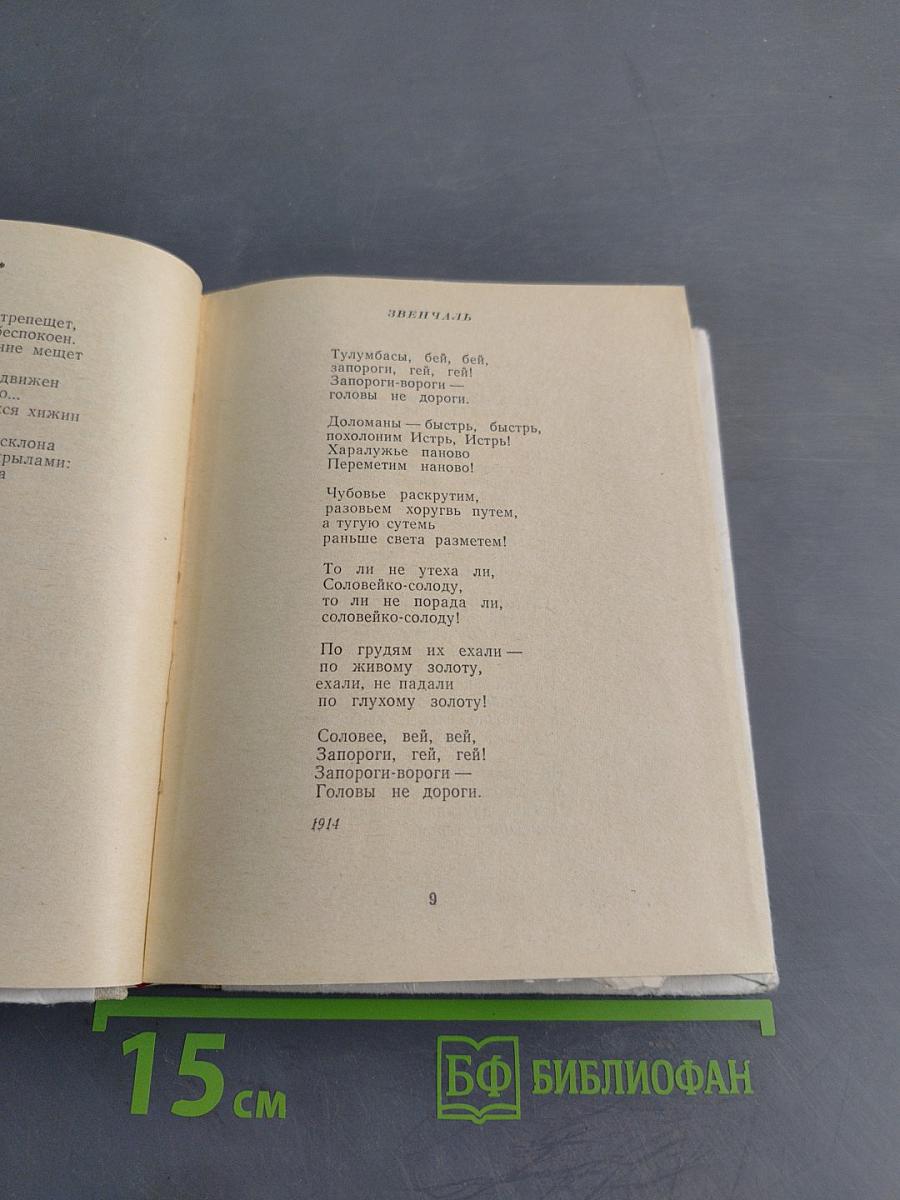 *
трепещет,
беспокоен.
мещет
движен
хижин
склона
крылами:
ЗВЕНЧАЛЬ
Тулумбасы, бей, бей,
запороги, гей, гей!
Запороги-вороги —
головы не дороги.
Доломаны — быстрь, быстрь,
похолоним Истрь, Истрь!
Харалужье паново
Переметим наново!
Чубовье раскрутим,
разовьем хоругвь путем,
а тугую сутемь
раньше света разметем!
То ли не утеха ли,
Соловейко-солоду,
то ли не порада ли,
соловейко-солоду!
По грудям их ехали —
по живому золоту,
ехали, не падали
по глухому золоту!
Соловее, вей, вей,
Запороги, гей, гей!
Запороги-вороги —
Головы не дороги.
1914
9
15 см
БФ БИБЛИОФАН